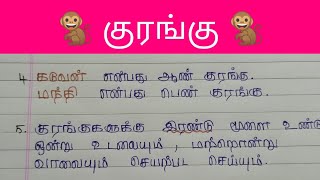 குரங்கு
4. கடுவன் என்பது ஆண் குரங்கு.
மந்தி என்பது பெண் குரங்கு.
5. குரங்குகளுக்கு இரண்டு மூளை உண்டு
ஒன்று உடலையும், மற்றொன்று
வாலையும் செயல்பட செய்யும்.